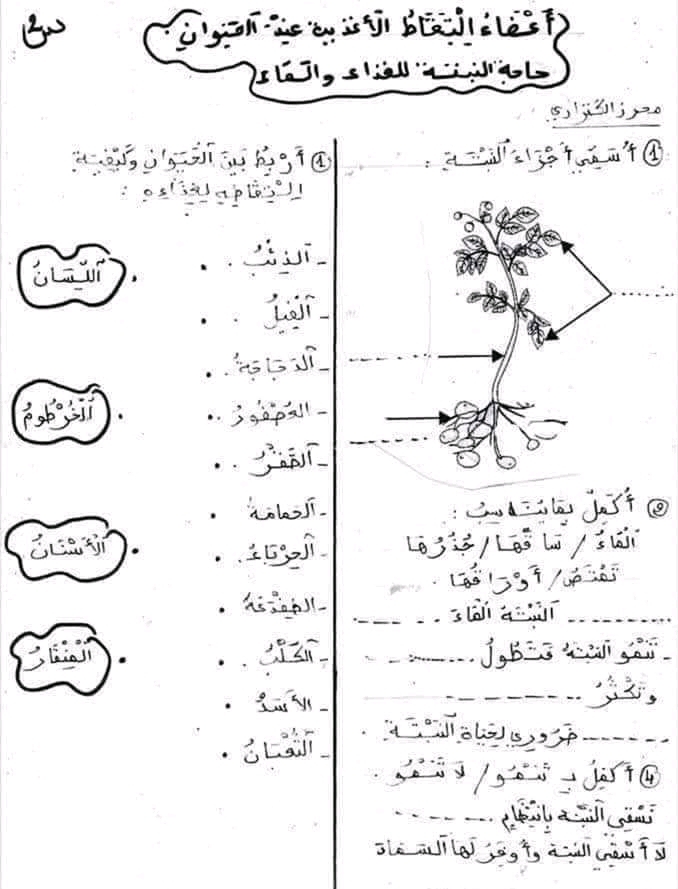 س2
أَعْضَاءُ اِلْتِقَاطُ الأغذية عند الحيوان
حاجة النبتة للغذاء والماء
محرز الكنزاري
① أُسَمِّي أجْزَاءَ النَّبْتَةِ :
② أُكَمِّلُ بِمَا يُنَاسِبُ :
اَلْمَاءُ / سَاقُهَا / جُذُرُهَا
تَمْتَصُّ / أَوْرَاقُهَا .
........... النَّبْتَةُ المَاءَ ........
- تَنْمُو النَّبْتَةُ فَتَطُولُ ........
وَتَكْثُرُ ...........
........ ضَرُورِي لِحَيَاةِ النَّبْتَةِ .
④ أُكَمِّلُ بِ تَنْمُو / لَا تَنْمُو .
نَسْقِي النَّبْتَة بِانْتِظَامٍ ........
لَا أَسْقِي النبتة وأُوَفِّرُ لها السماد
① أَرْبِطُ بَيْنَ الْحَيَوَانِ وَكَيْفِيَّةِ
اِلْتِقَاطِهِ لِغِذَاءِهِ :
- الذِّئْبُ .
- الْفِيلُ .
- الدَّجَاجَةُ .
- العُصْفُورُ .
- الصَّقْرُ .
- الحَمَامَةُ .
- الحِرْبَاءُ .
- الضِّفْدَعَةُ .
- الكَلْبُ .
- الأَسَدُ .
- الثُّعْبَانُ .
اَللِّسَانُ
اَلْخُرْطُومُ
اَلْأَسْنَانُ
اَلْمِنْقَارُ